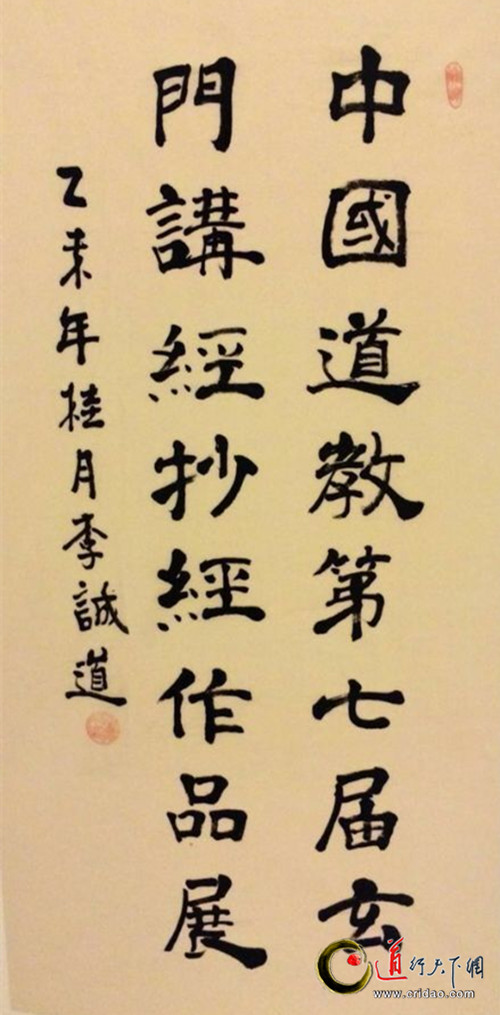 中國道教第七届玄
門講經抄經作品展
乙未年桂月李誠道
道行天下網
www.cridao.com